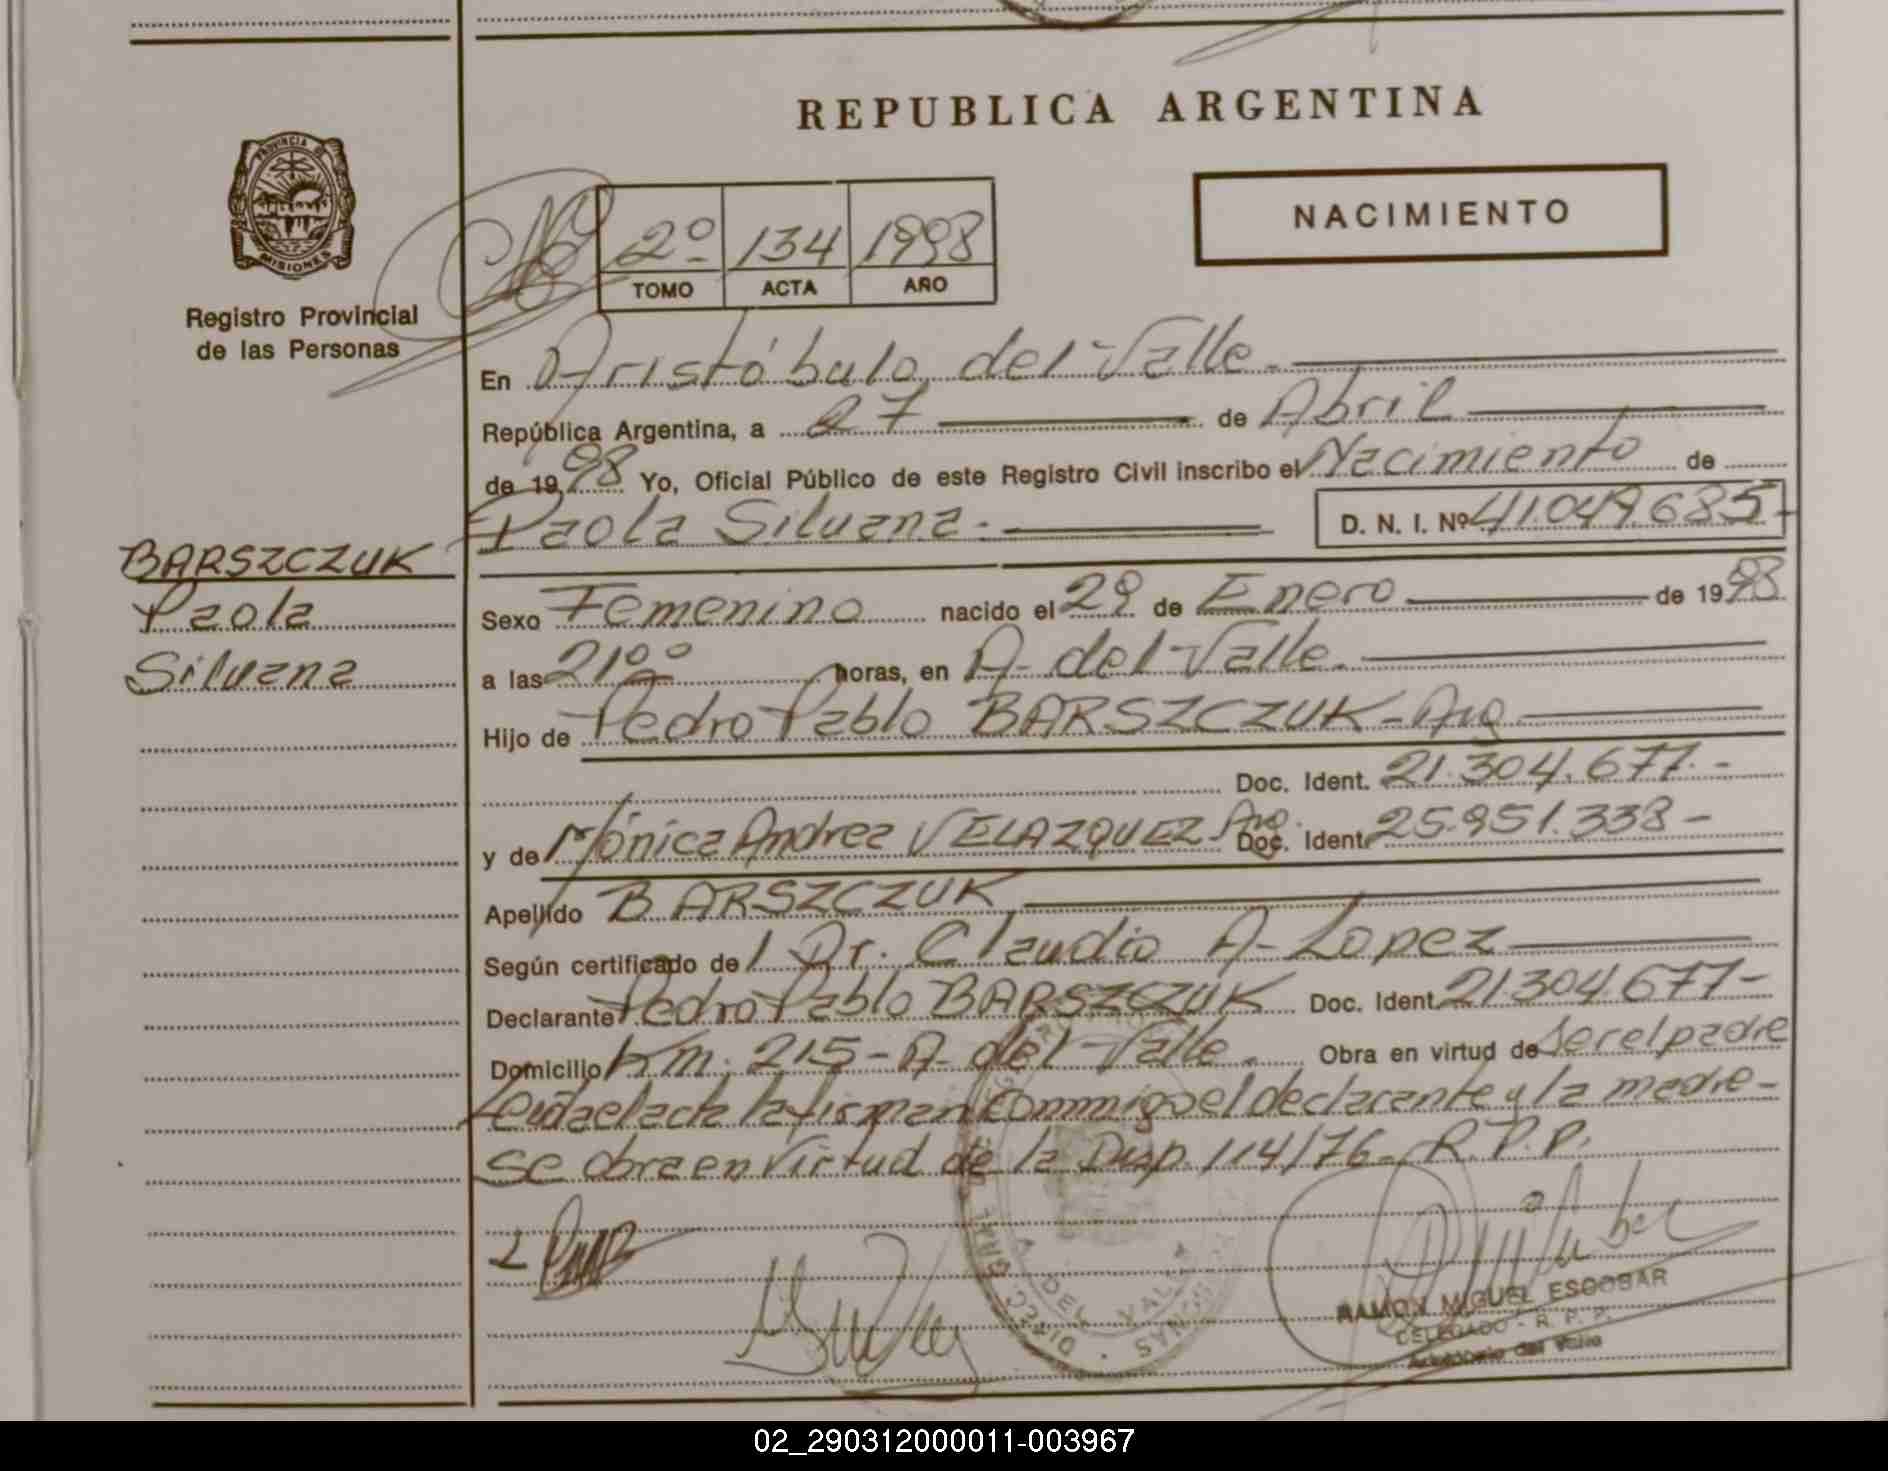 REPUBLICA ARGENTINA
PROVINCIA DE
MISIONES
Registro Provincial
de las Personas
NACIMIENTO
2º 134 1998
TOMO ACTA AÑO
En Aristóbulo del Valle.
República Argentina, a 27 de Abril
de 1998 Yo, Oficial Público de este Registro Civil inscribo el Nacimiento de
Paola Silvana. D. N. I. Nº 41.049.685-
BARSZCZUK
Paola
Silvana
Sexo Femenino nacido el 29 de Enero de 1998
a las 21⁰⁰ horas, en A. del Valle.
Hijo de Pedro Pablo BARSZCZUK - Arg
Doc. Ident. 21.304.677.-
y de Mónica Andrea VELAZQUEZ Arg. Doc. Ident. 25.951.338-
Apellido BARSZCZUK
Según certificado del Dr. Claudio A. Lopez
Declarante Pedro Pablo BARSZCZUK Doc. Ident. 21.304.677-
Domicilio Km. 215 - A. del Valle. Obra en virtud de ser el padre
Leida el acta la firman conmigo el declarante y la madre-
se obra en virtud de la Disp. 114/76- R.P.P.
A. DEL VALLE
RAMON MIGUEL ESCOBAR
DELEGADO - R. P. P.
Aristobulo del Valle
02_290312000011-003967